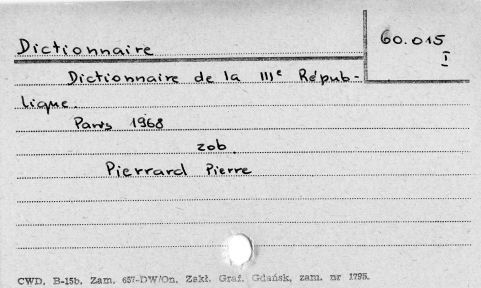 Dictionnaire
60.015
I
Dictionnaire de la IIIe Répub-
lique.
Paris 1968
zob.
Pierrard Pierre
CWD, B-15b, Zam. 657-DW/On. Zakł. Graf. Gdańsk, zam. nr 1795.